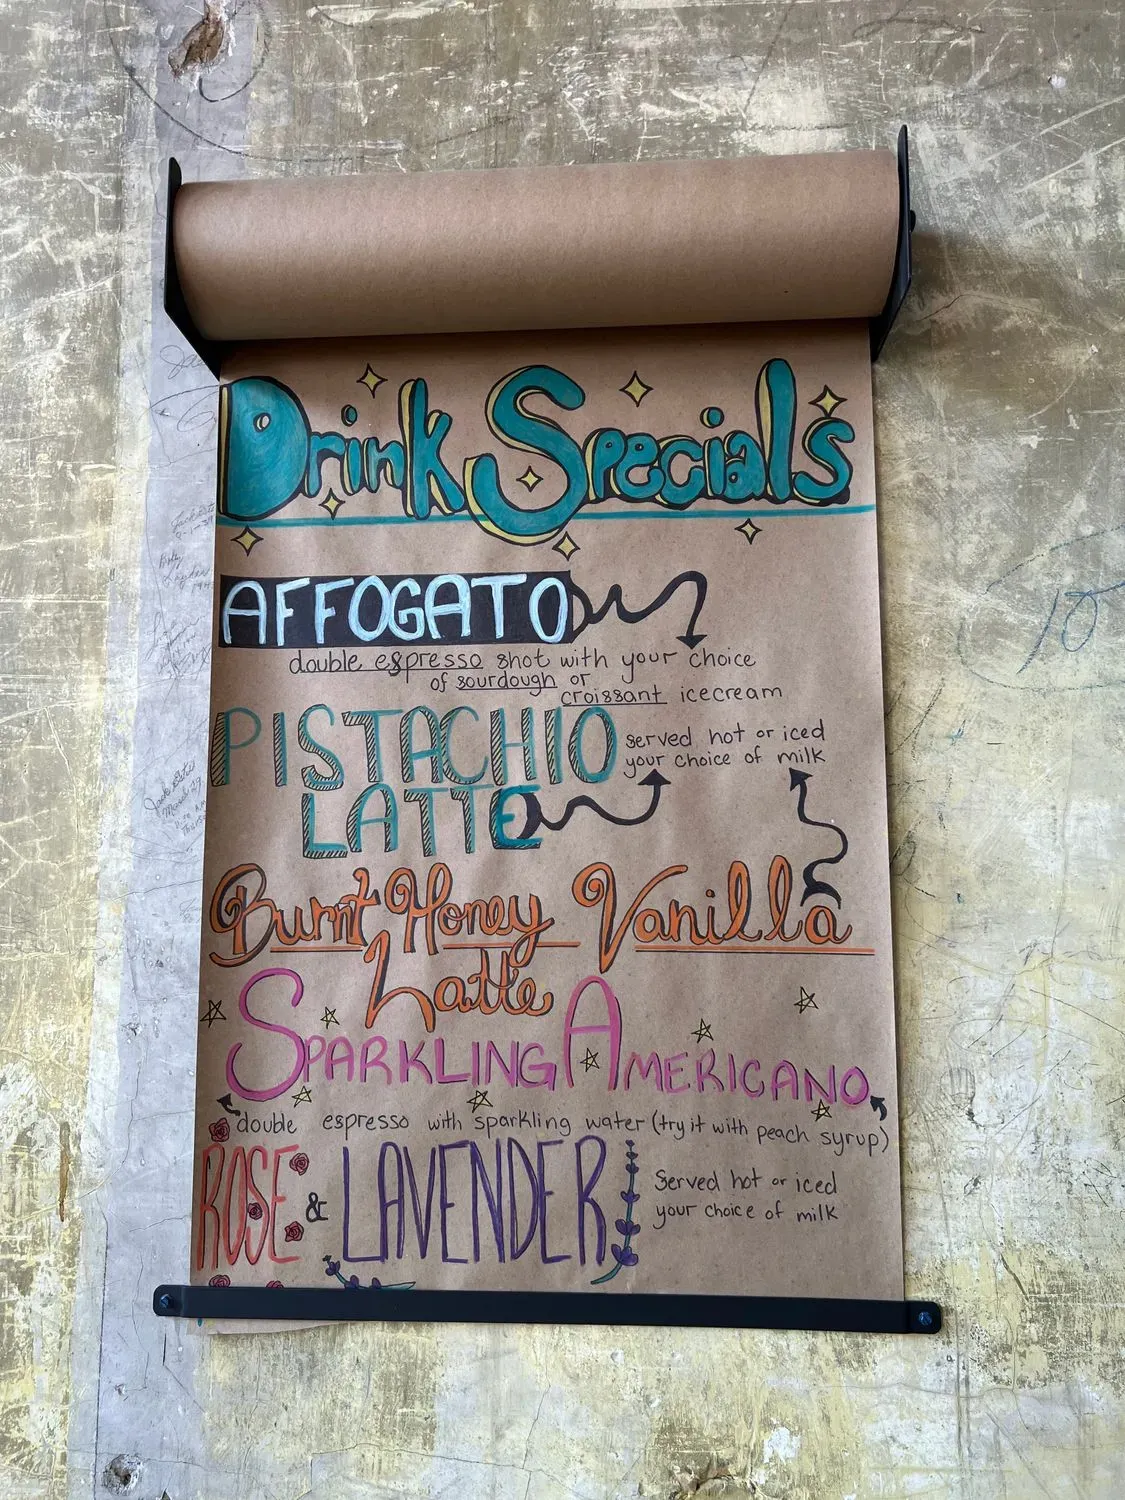 Drink Specials
AFFOGATO
double espresso shot with your choice
of sourdough or
croissant icecream
PISTACHIO
LATTE
served hot or iced
your choice of milk
Burnt Honey Vanilla
Latte
SPARKLING AMERICANO
double espresso with sparkling water (try it with peach syrup)
ROSE & LAVENDER
Served hot or iced
your choice of milk